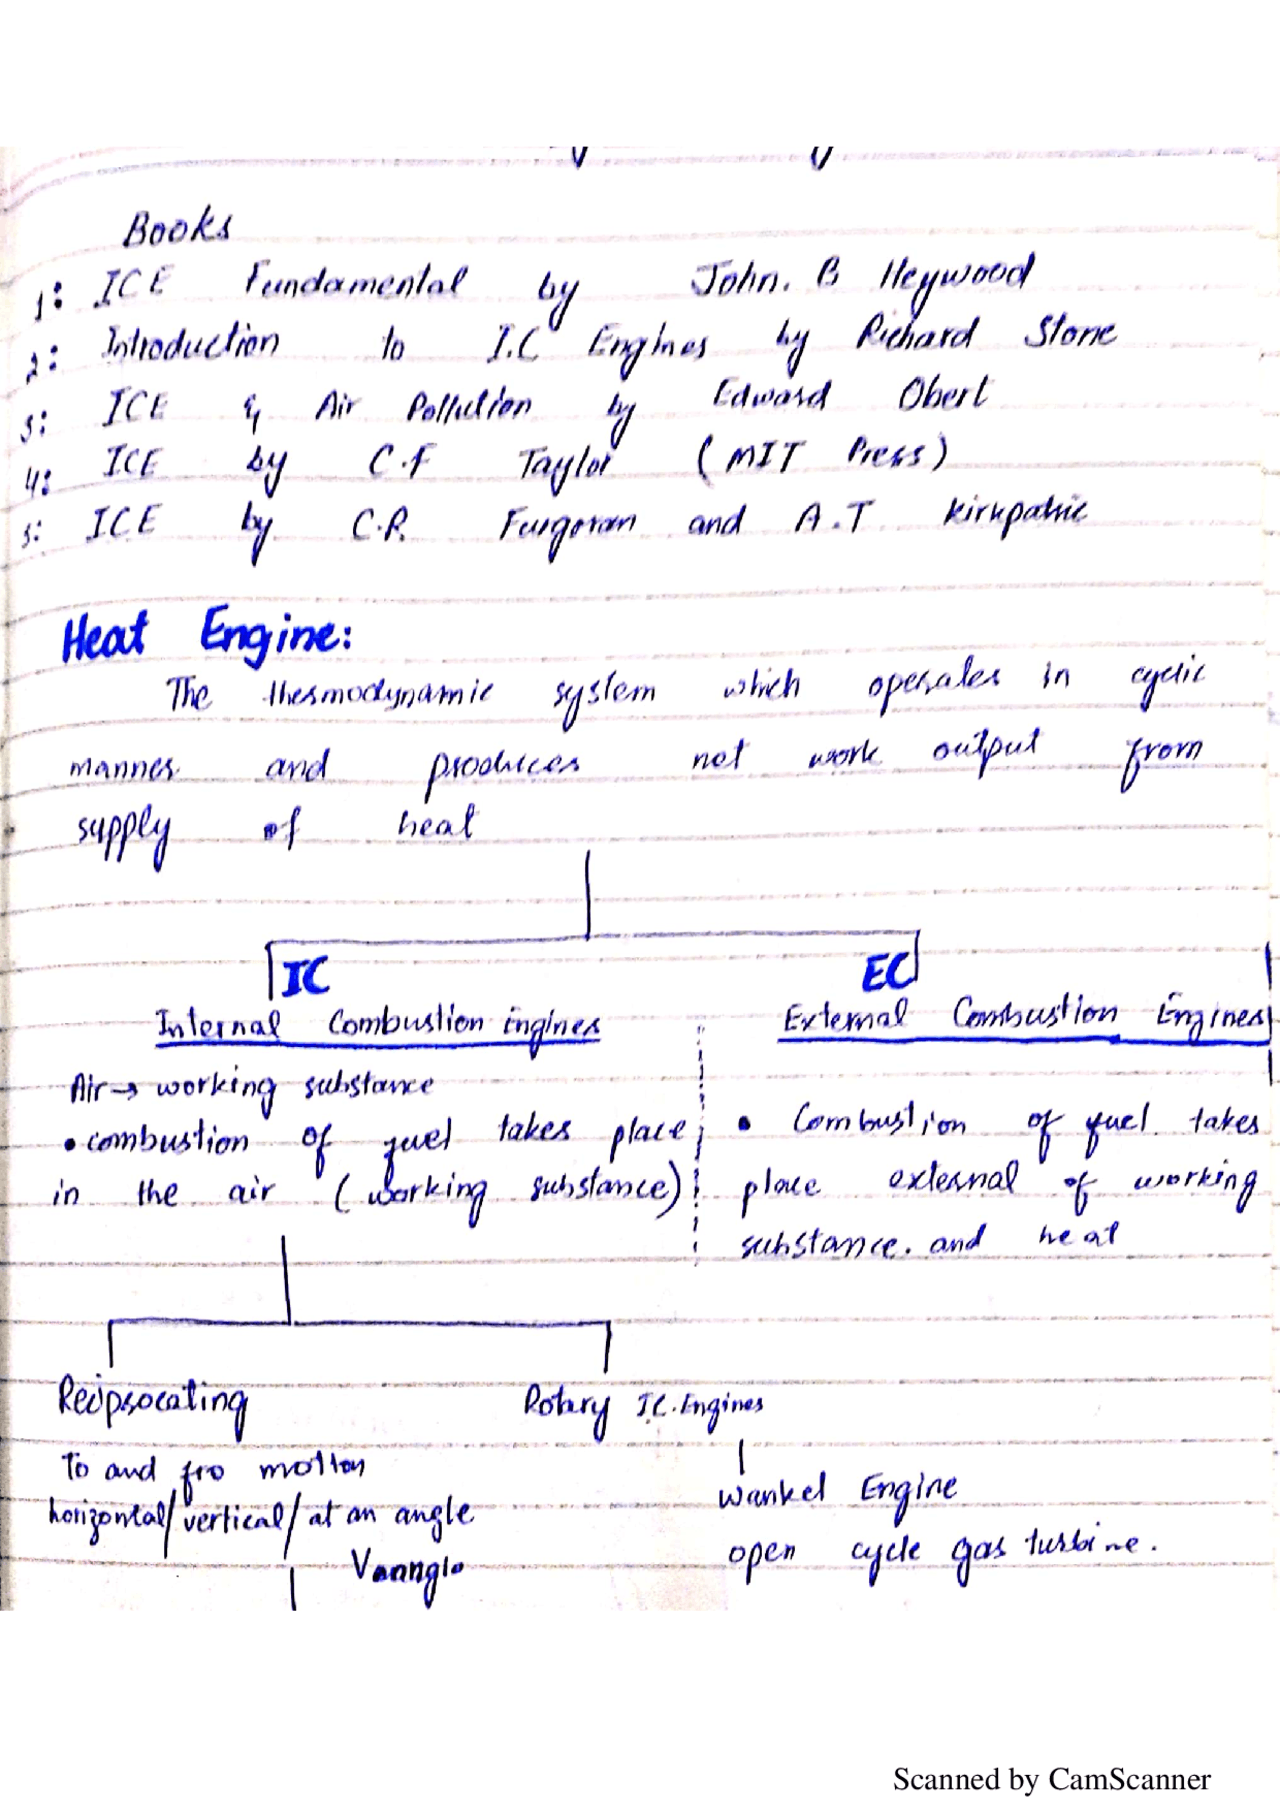 Books
1: ICE Fundamental by John. B Heywood
2: Introduction to I.C Engines by Richard Stone
3: ICE & Air Pollution by Edward Obert
4: ICE by C.F Taylor (MIT Press)
5: ICE by C.R. Furgoran and A.T. Kirkpatric
Heat Engine:
The thermodynamic system which operates in cyclic
manner and produces net work output from
supply of heat
IC EC
Internal Combustion Engines External Combustion Engines
Air → working substance
• combustion of fuel takes place • Combustion of fuel takes
in the air (working substance) place external of working
substance. and heat
Reciprocating Rotary I.C. Engines
To and fro motion
horizontal/vertical/at an angle Wankel Engine
open cycle gas turbine.
Scanned by CamScanner